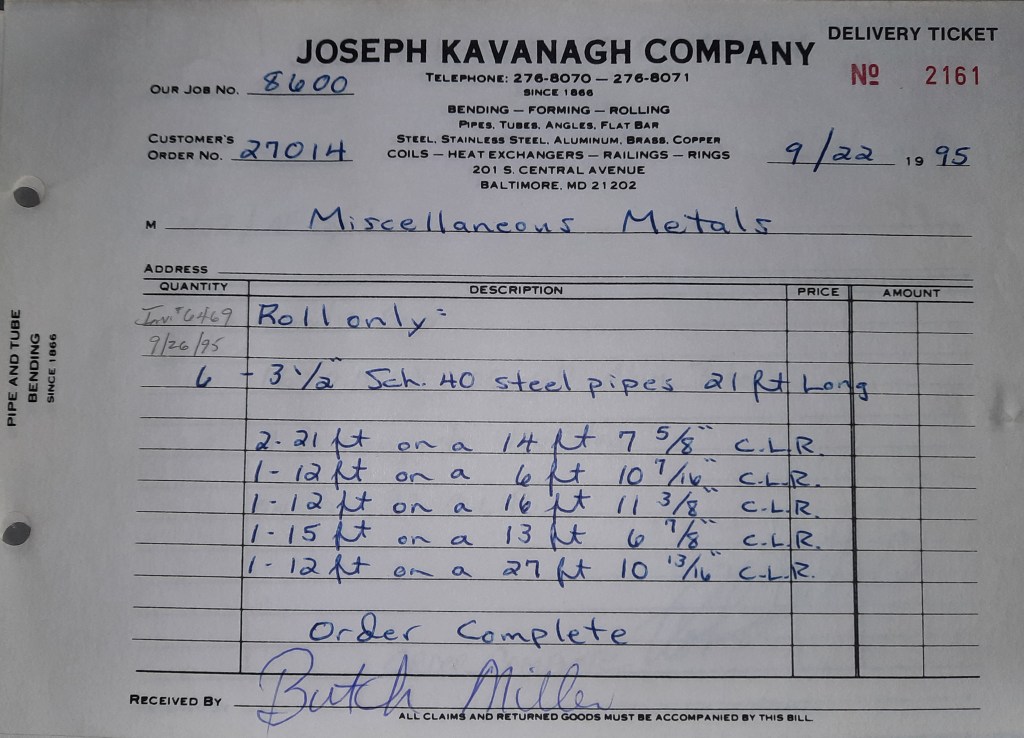 DELIVERY TICKET
JOSEPH KAVANAGH COMPANY
Nº 2161
TELEPHONE: 276-8070 — 276-8071
SINCE 1866
OUR JOB NO. 8600
BENDING — FORMING — ROLLING
PIPES, TUBES, ANGLES, FLAT BAR
CUSTOMER'S
ORDER NO. 27014
STEEL, STAINLESS STEEL, ALUMINUM, BRASS, COPPER
COILS — HEAT EXCHANGERS — RAILINGS — RINGS
9/22 19 95
201 S. CENTRAL AVENUE
BALTIMORE, MD 21202
M Miscellaneous Metals
ADDRESS
QUANTITY DESCRIPTION PRICE AMOUNT
Inv. # 6469 Roll only:
9/26/95
6 - 3 1/2" Sch. 40 steel pipes 21 ft Long
2 - 21 ft on a 14 ft 7 5/8" C.L.R.
1 - 12 ft on a 6 ft 10 7/16" C.L.R.
1 - 12 ft on a 16 ft 11 3/8" C.L.R.
1 - 15 ft on a 13 ft 6 7/8" C.L.R.
1 - 12 ft on a 27 ft 10 13/16" C.L.R.
Order Complete
RECEIVED BY Butch Miller
ALL CLAIMS AND RETURNED GOODS MUST BE ACCOMPANIED BY THIS BILL
PIPE AND TUBE
BENDING
SINCE 1866